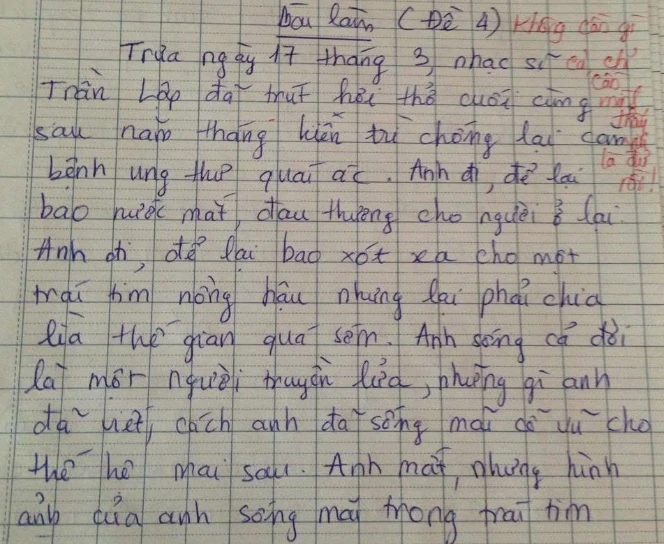 Bài làm (Đề 4)
Trưa ngày 17 tháng 3, nhạc sĩ
Trần Lập đã trút hơi thở cuối cùng
sau năm tháng kiên trì chống lại căn
bệnh ung thư quái ác. Anh đi, để lại
bao nước mắt, đau thương cho người ở lại.
Anh đi, để lại bao xót xa cho một
trái tim nồng hậu nhưng lại phải chia
lìa thế gian quá sớm. Anh sống cả đời
là một người truyền lửa, những gì anh
đã viết, cách anh đã sống mãi cổ vũ cho
thế hệ mai sau. Anh mất, nhưng hình
ảnh của anh sống mãi trong trái tim
Không cần gì
cả chỉ
cần
thấy
là đủ
rồi!